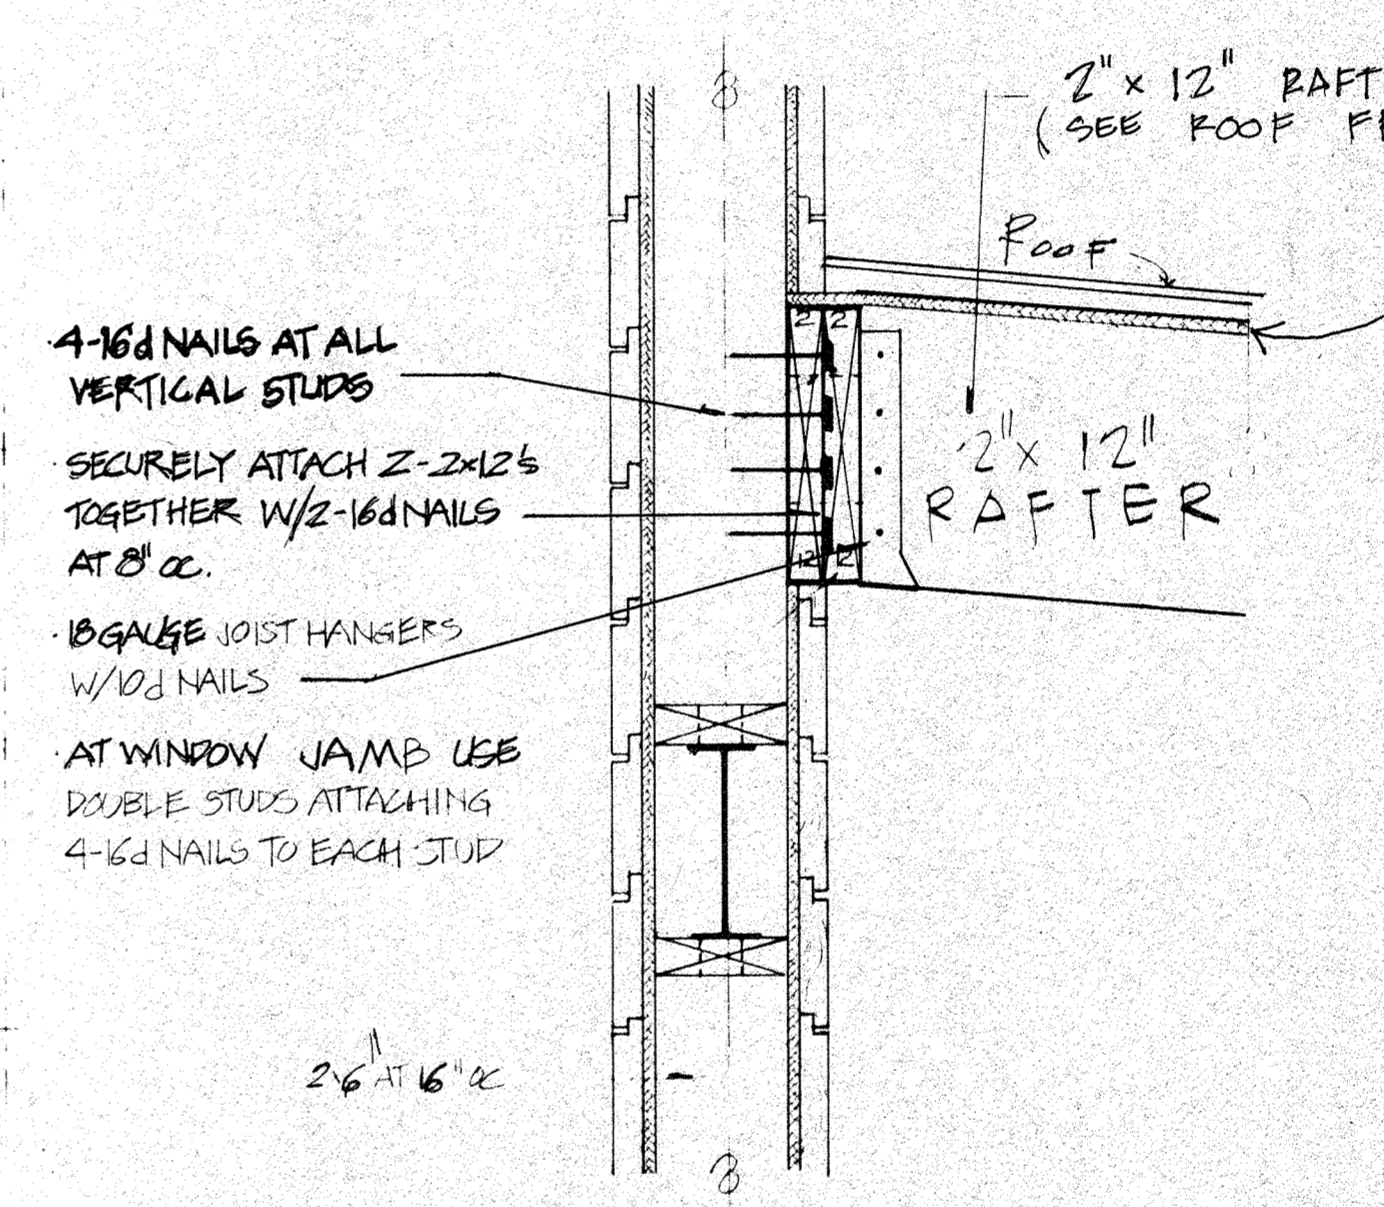 2" x 12" RAFT
(SEE ROOF F
ROOF
·4-16d NAILS AT ALL
VERTICAL STUDS
· SECURELY ATTACH 2-2x12's
TOGETHER W/2-16d NAILS
AT 8" OC.
· 18 GAUGE JOIST HANGERS
W/10d NAILS
· AT WINDOW JAMB USE
DOUBLE STUDS ATTACHING
4-16d NAILS TO EACH STUD
2 2
12 12
2" x 12"
RAFTER
2x6" AT 16" OC